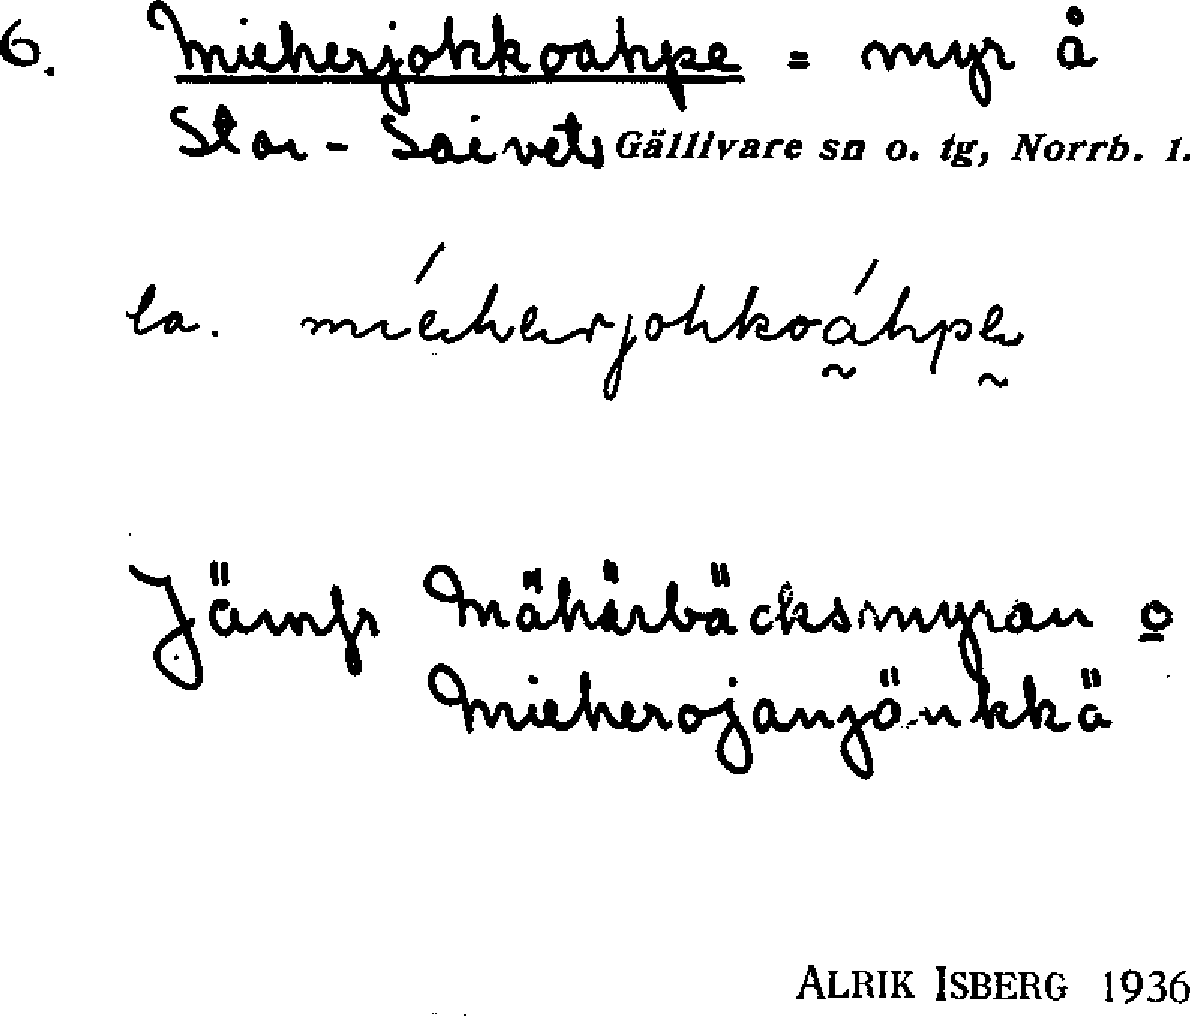 6. Mieherjokkoahpe = myr å
Stor-Saivets Gällivare sn o. tg, Norrb. l.
la. miéherjohkoáhpe
Jämfr Mähärbäcksmyran o
Mieherojanjönkkä
ALRIK ISBERG 1936